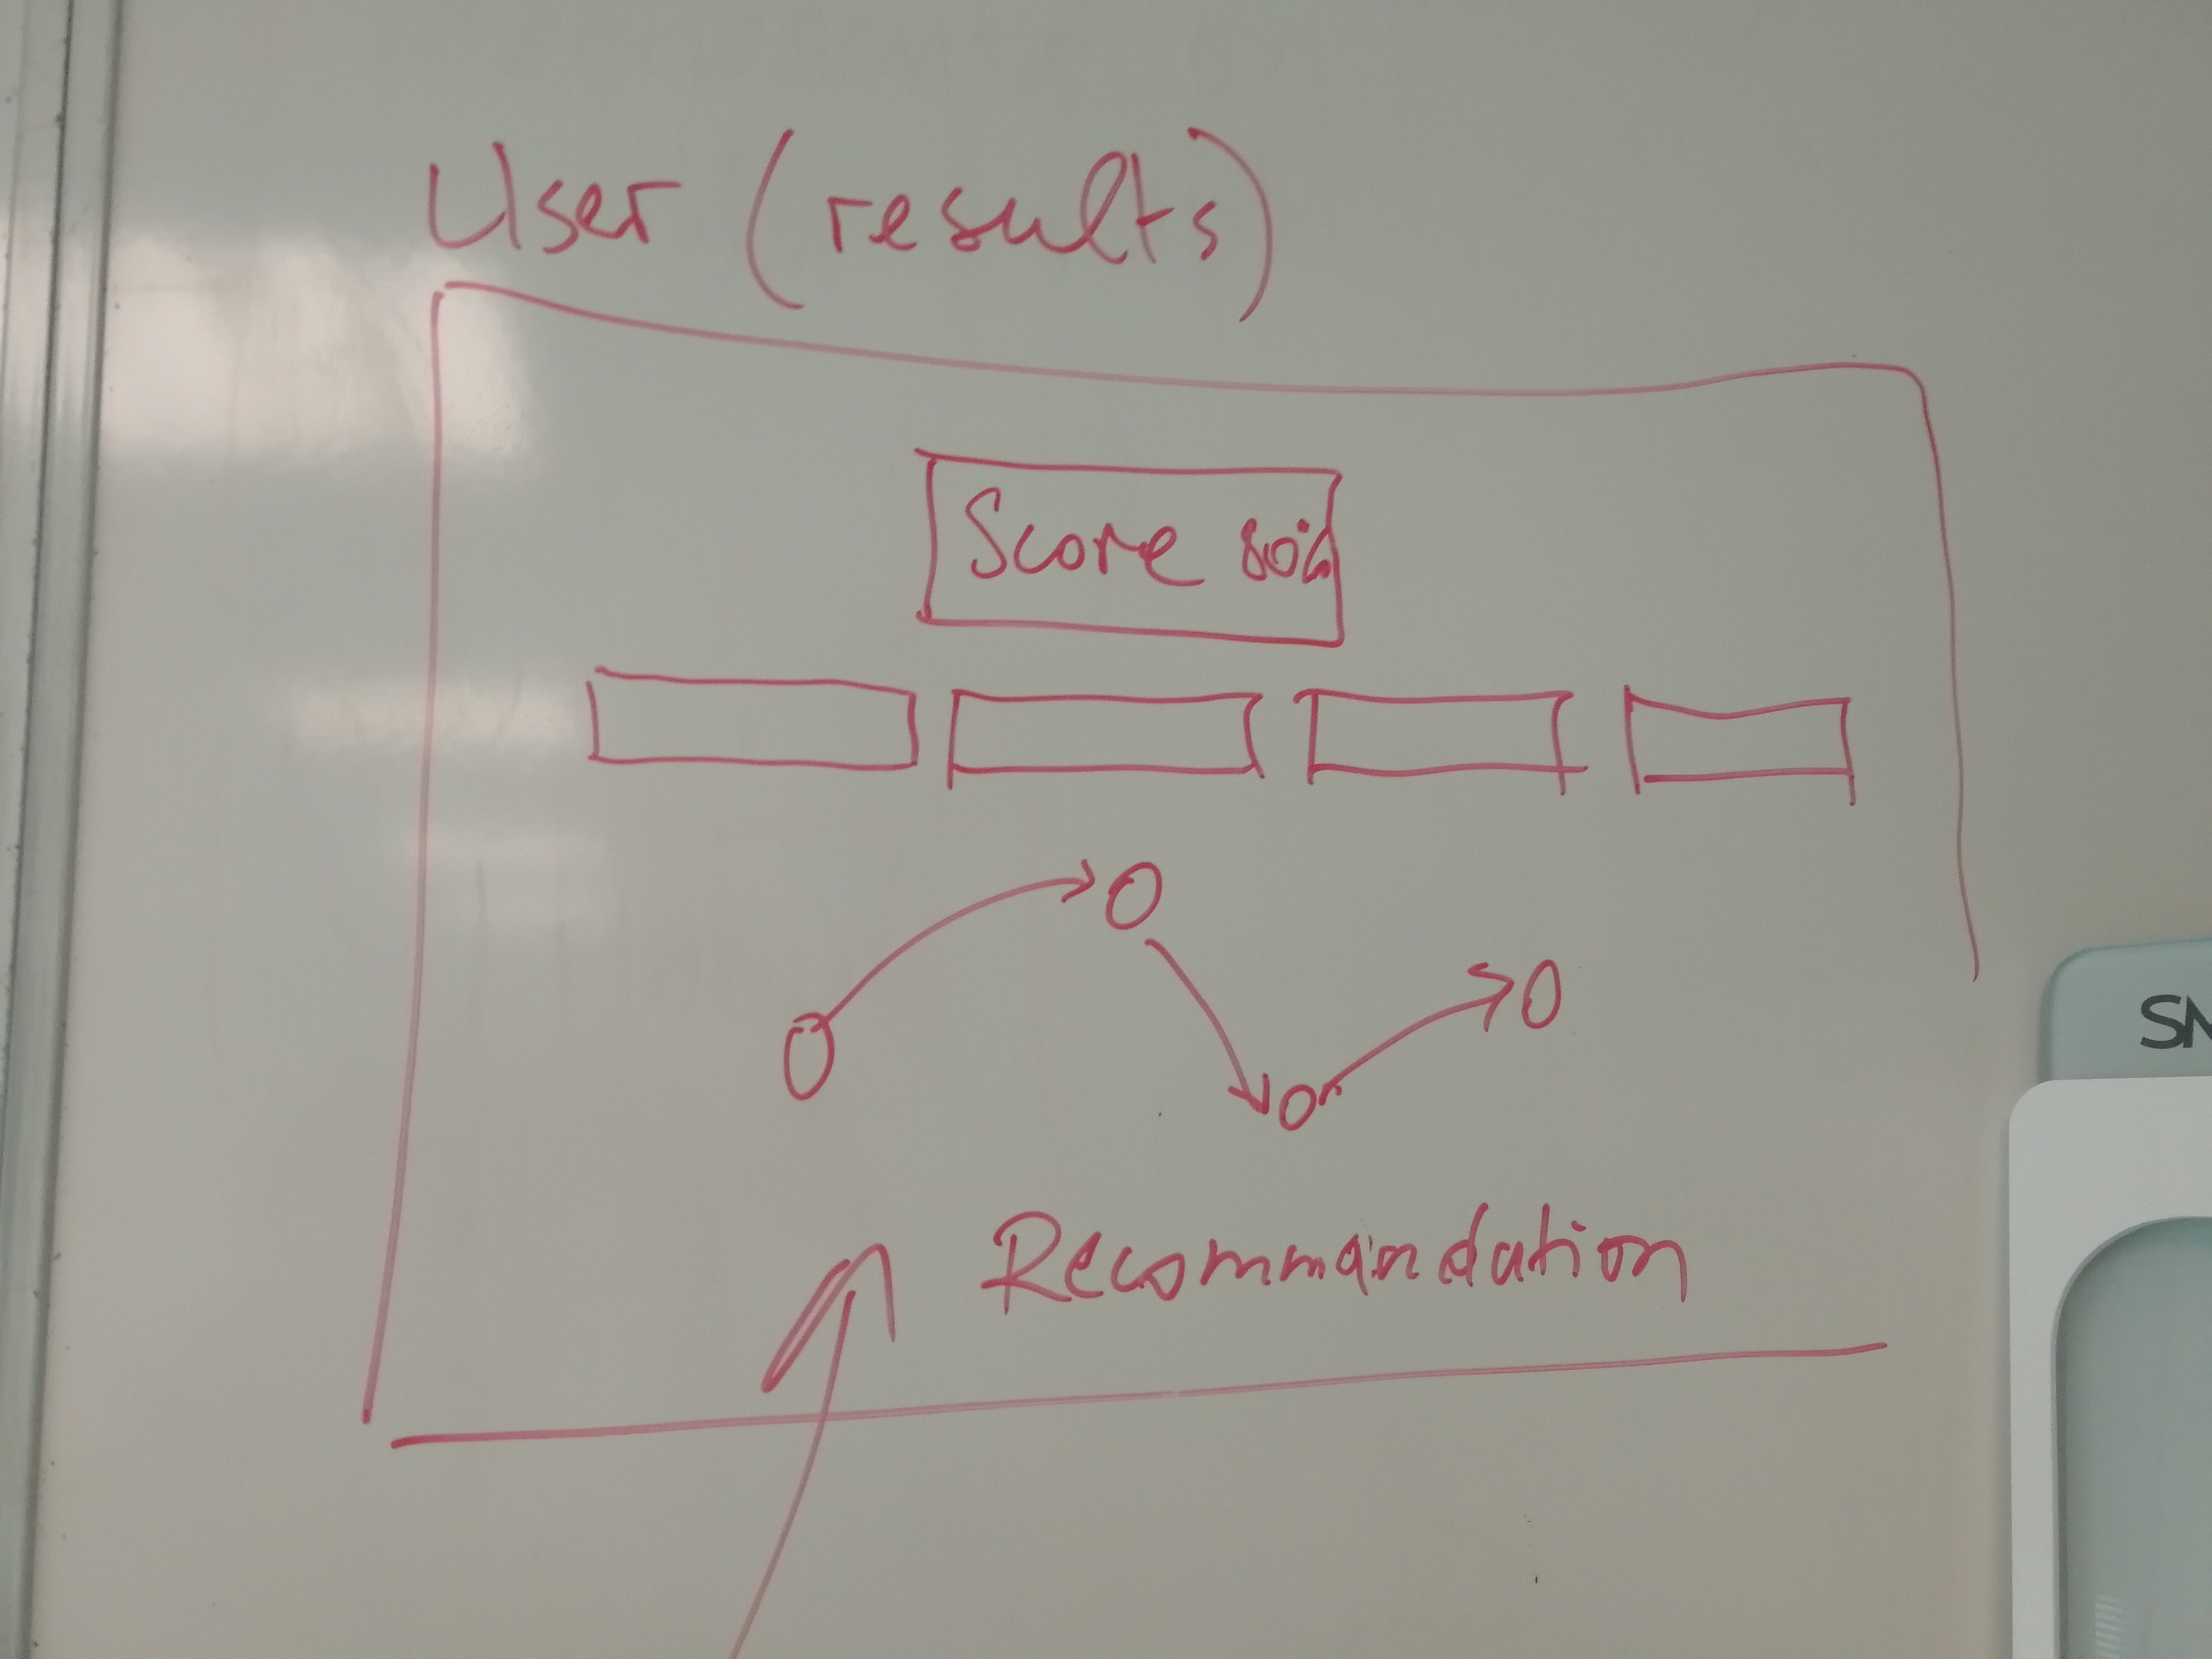 User (results)
Score 80%
Recommandation